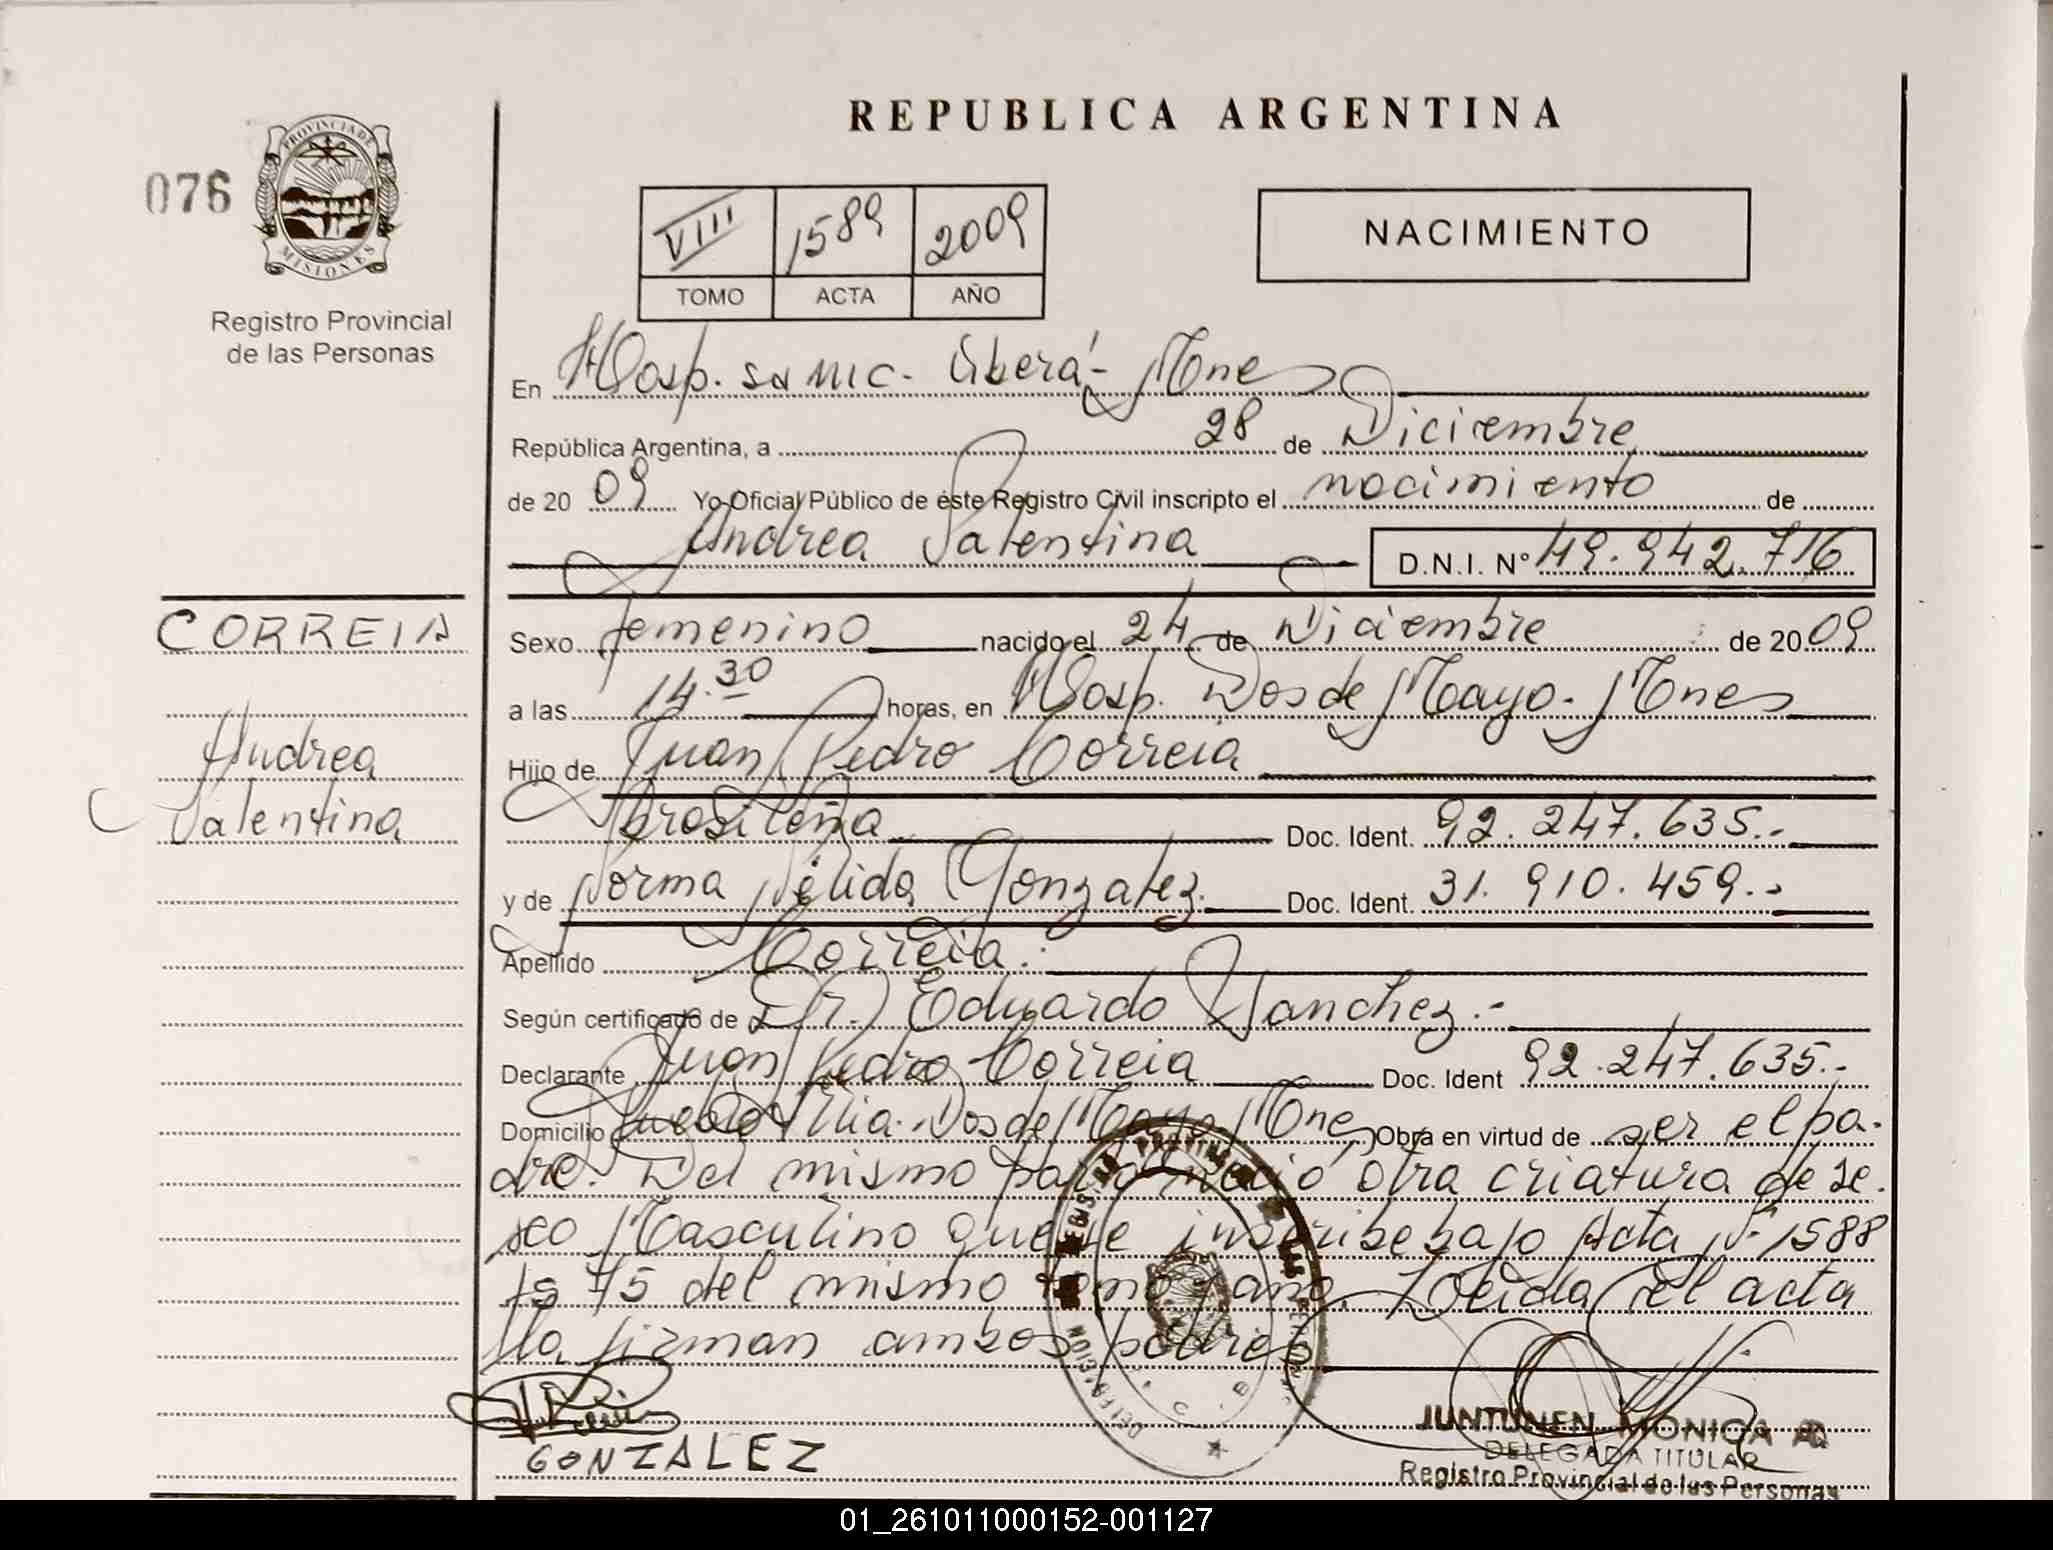 REPUBLICA ARGENTINA
076
PROVINCIA DE
MISIONES
Registro Provincial
de las Personas
VIII 1589 2009
TOMO ACTA AÑO
NACIMIENTO
En Hosp. samic. Oberá - Mnes
República Argentina, a 28 de Diciembre
de 2009 Yo Oficial Público de éste Registro Civil inscripto el nacimiento de
Andrea Valentina D.N.I. Nº 49.942.716
CORREIA
Andrea
Valentina
Sexo femenino nacido el 24 de Diciembre de 2009
a las 14.30 horas, en Hosp. Dos de Mayo - Mnes
Hijo de Juan Pedro Correia
Brasileña Doc. Ident. 92.247.635.-
y de Norma Nélida Gonzalez. Doc. Ident. 31.910.459.-
Apellido Correia.
Según certificado de Dr. Eduardo Sanchez.-
Declarante Juan Pedro Correia Doc. Ident 92.247.635.-
Domicilio Pueblo Illia. Dos de Mayo Mnes Obra en virtud de ser el pa-
dre. Del mismo parto nació otra criatura de se-
xo Masculino que se inscribe bajo Acta Nº 1588
fs 75 del mismo tomo y año. Leída el acta
la firman ambos padres
GONZALEZ
JUNTUNEN MONICA
DELEGADA TITULAR
Registro Provincial de las Personas
01_261011000152-001127